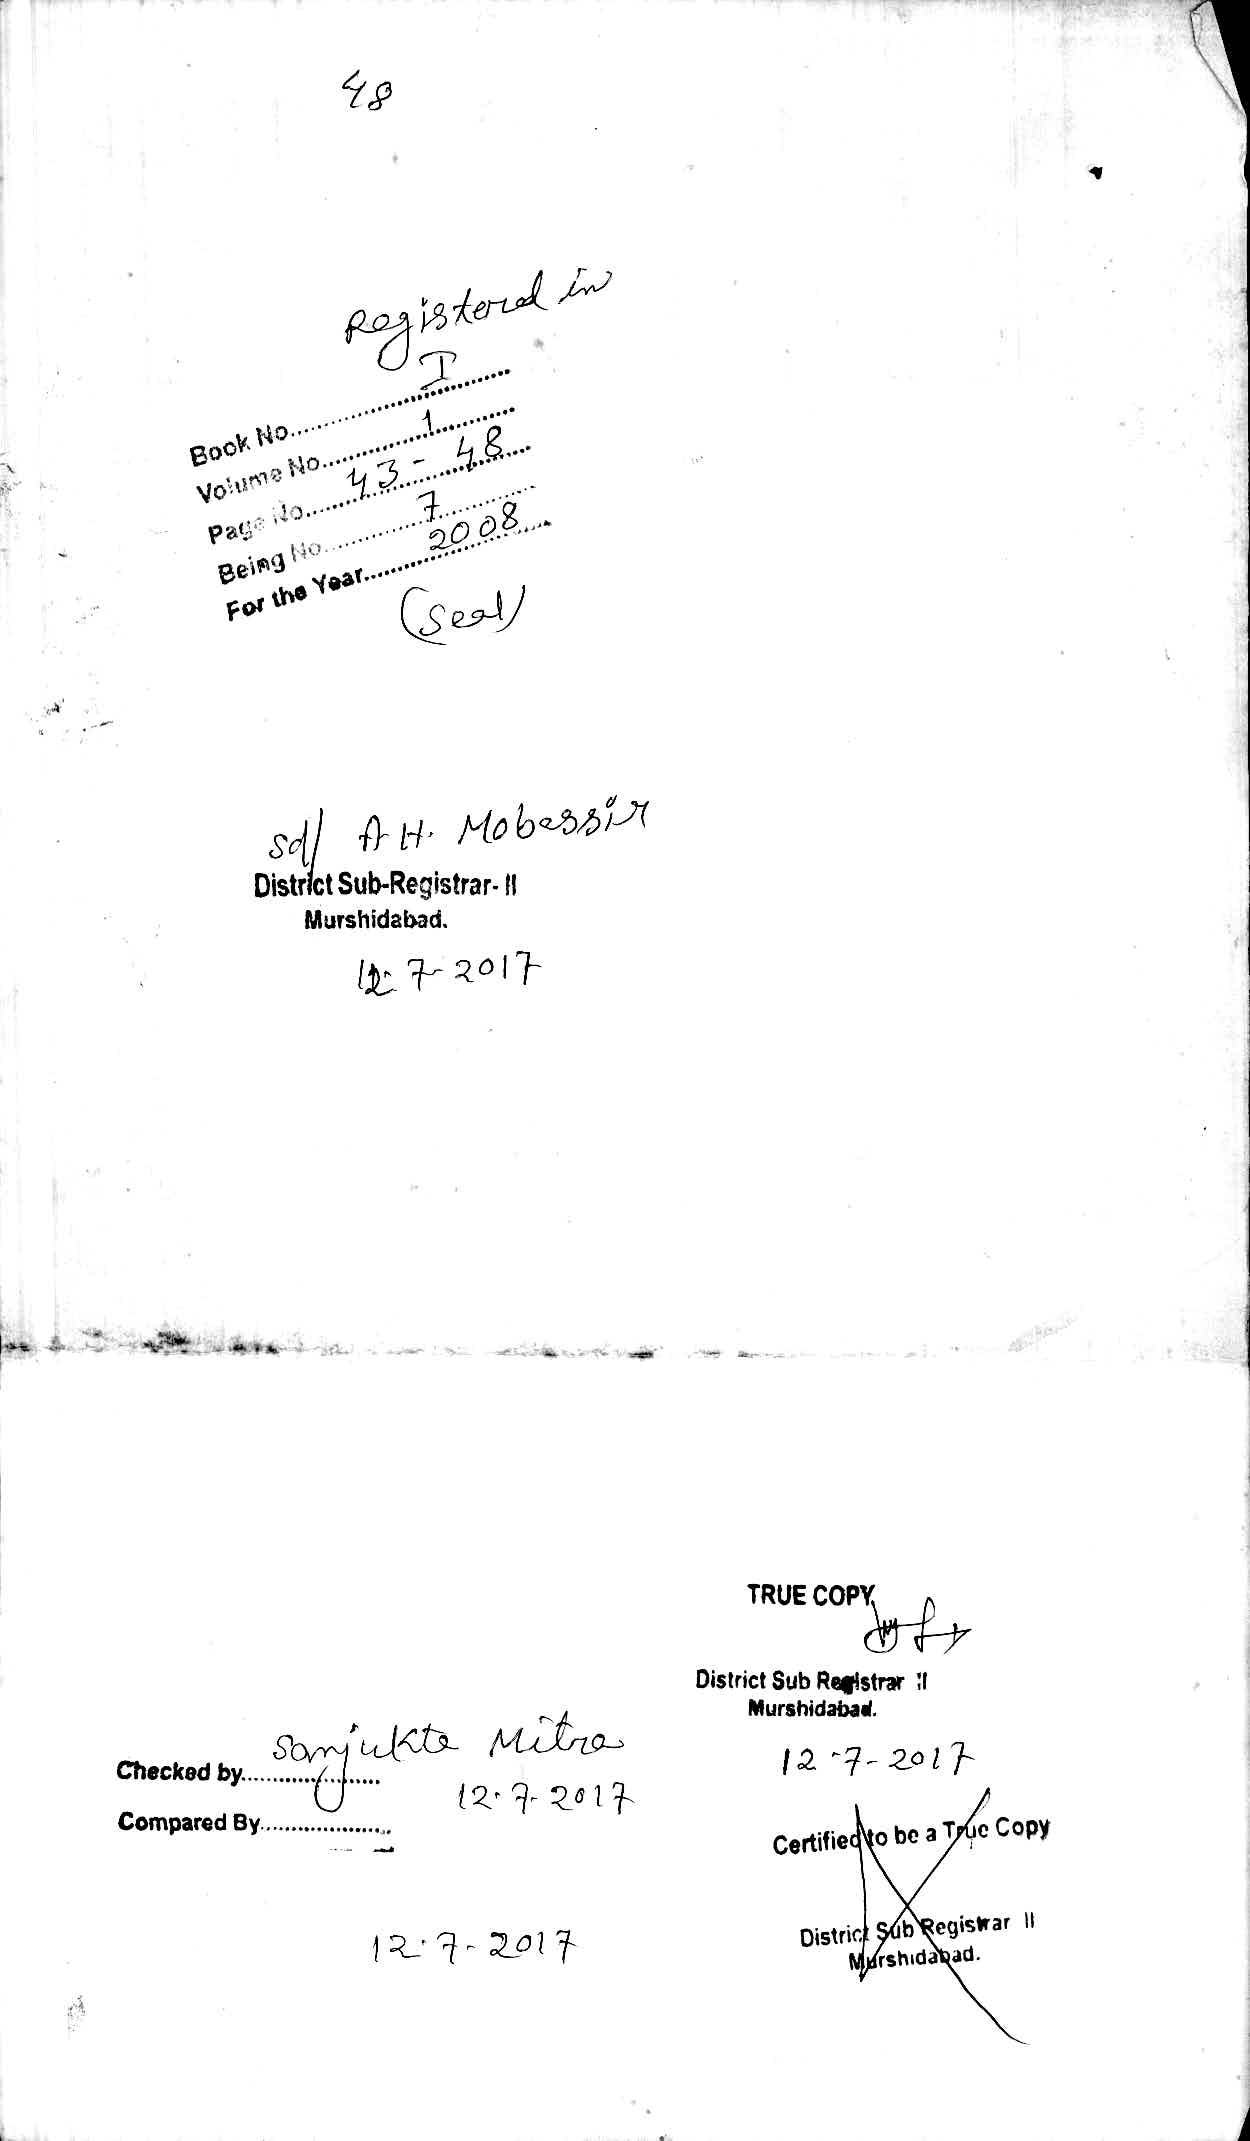 48
Registered in
Book No. I
Volume No. 1
Page No. 43 - 48
Being No. 7
For the Year. 2008
(Seal)
Sd/ A H. Mobassir
District Sub-Registrar- II
Murshidabad.
12. 7- 2017
TRUE COPY
District Sub Registrar II
Murshidabad.
12 -7- 2017
Checked by Sanjukta Mitra
12. 7- 2017
Compared By
Certified to be a True Copy
District Sub Registrar II
Murshidabad.
12. 7- 2017